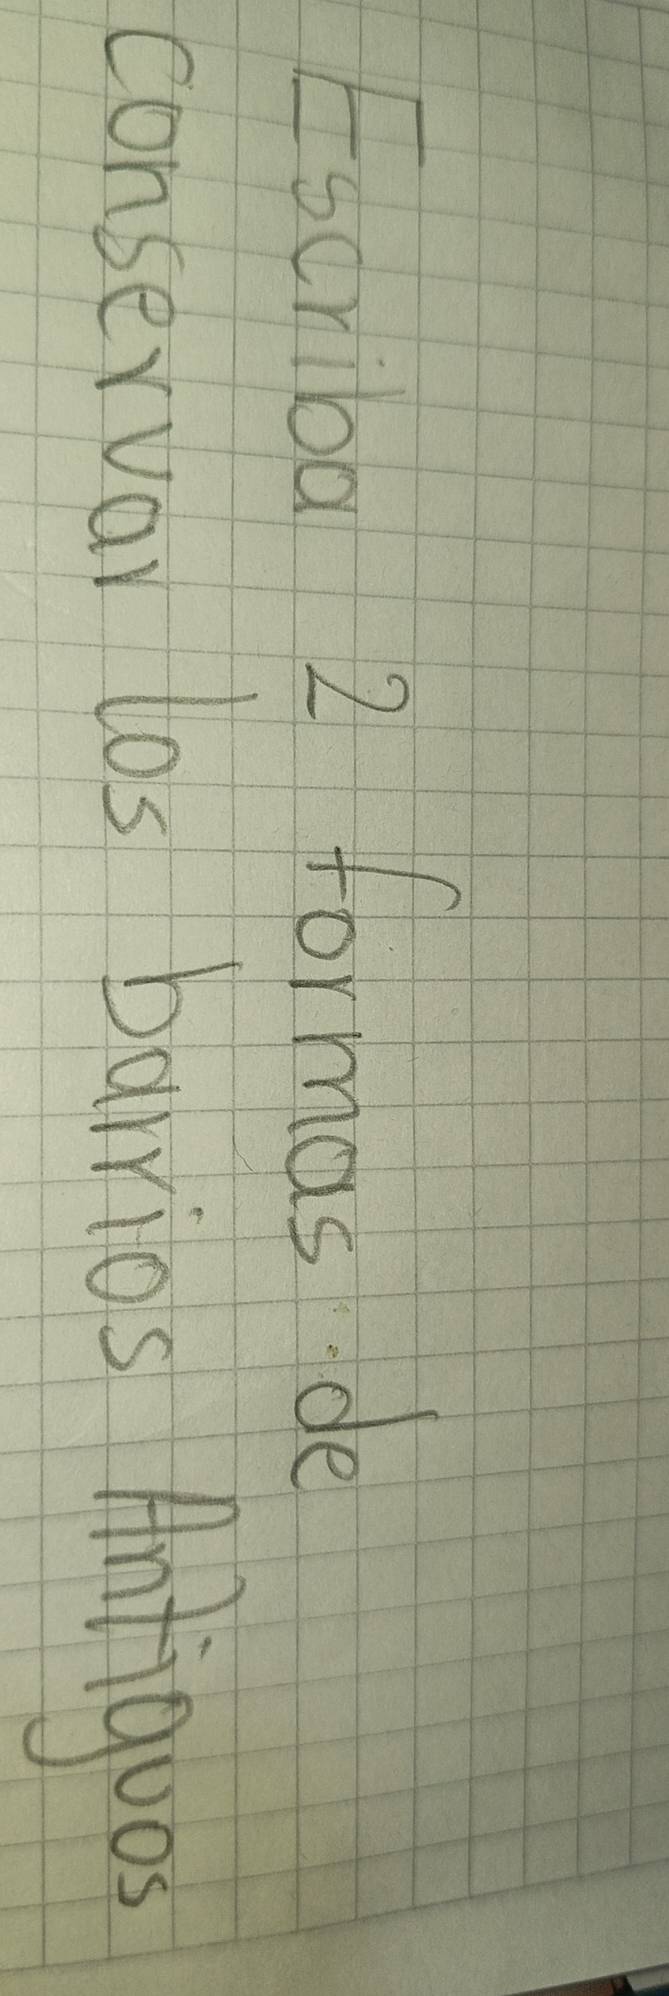 Escriba 2 formas de
conservar los barrios Antiguos